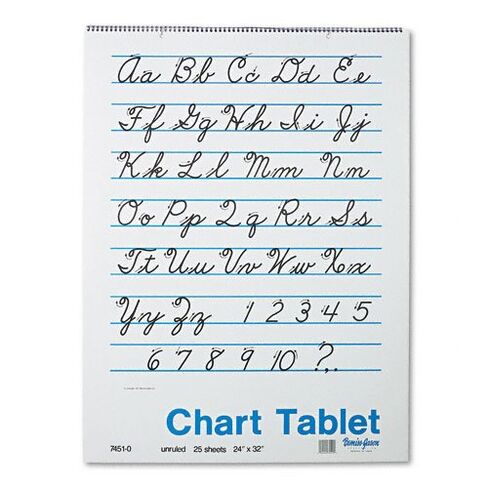 Aa Bb Cc Dd Ee
Ff Gg Hh Ii Jj
Kk Ll Mm Nn
Oo Pp Qq Rr Ss
Tt Uu Vv Ww Xx
Yy Zz 1 2 3 4 5
6 7 8 9 10 ?,.
Chart Tablet
7451-0 unruled 25 sheets 24" x 32" Bemiss-Jason